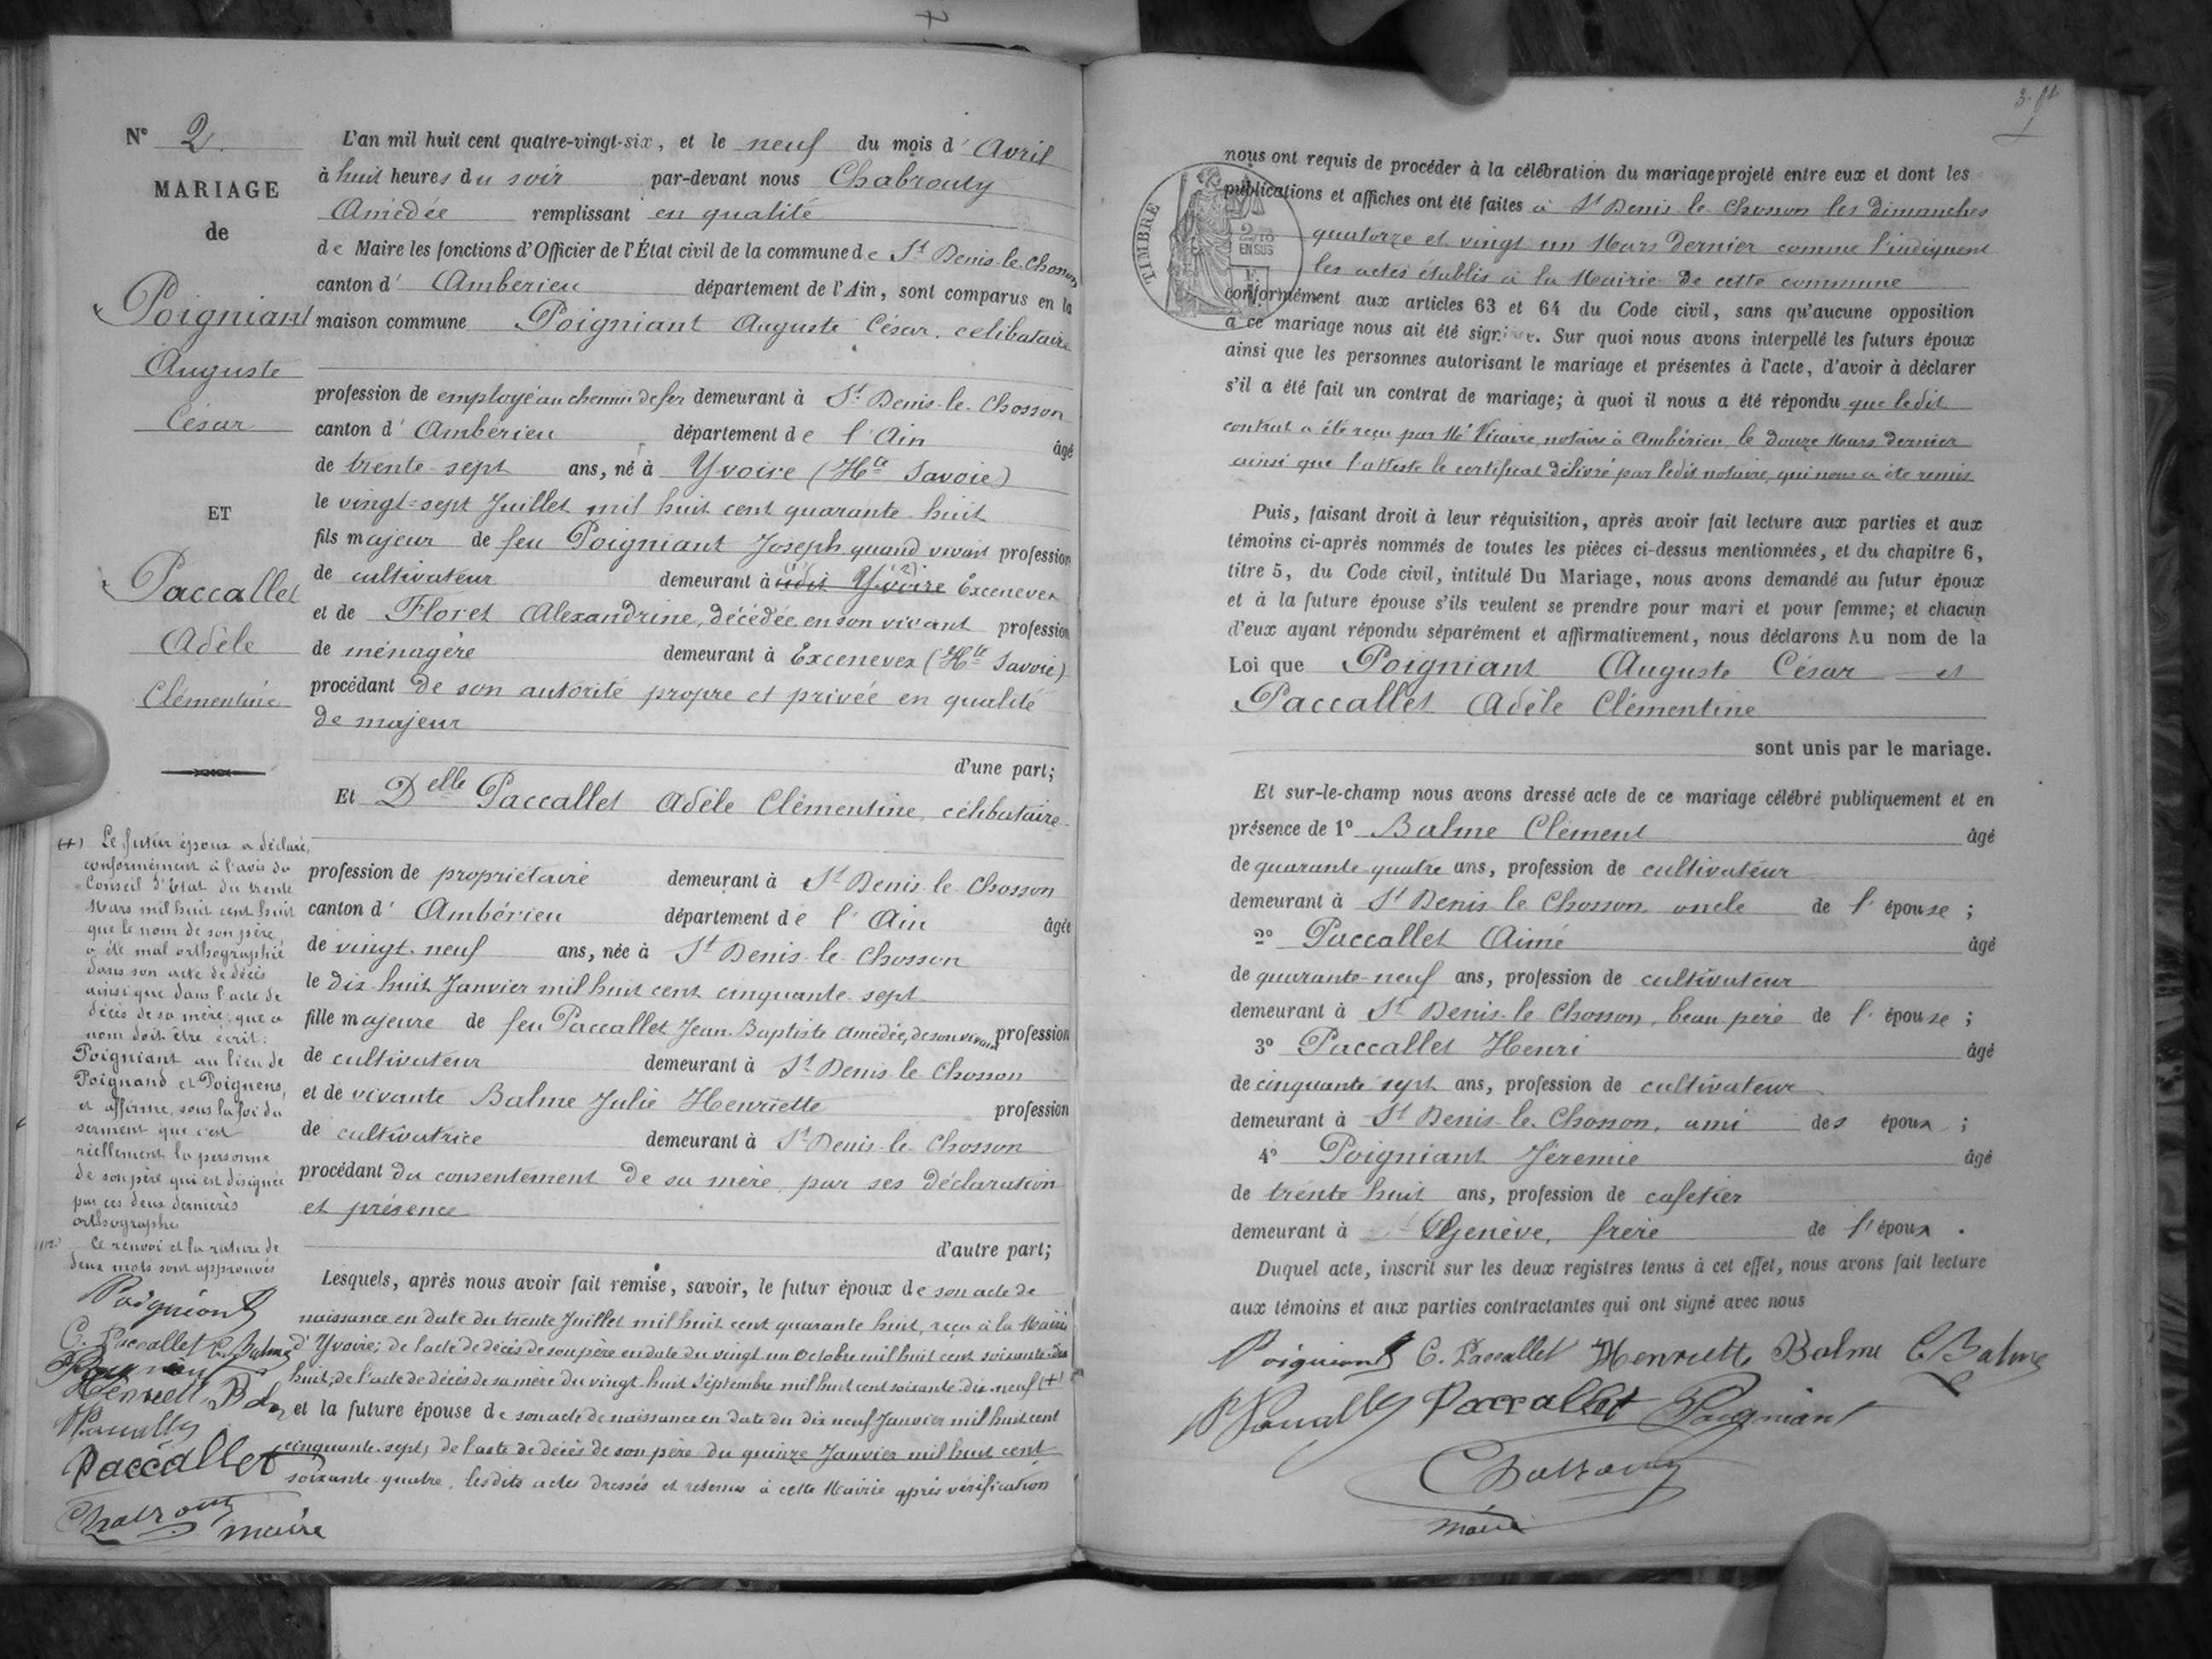 N° 2.
MARIAGE
de
Poigniant
Auguste
César
ET
Paccallet
Adèle
Clémentine
(+) Le futur époux a déclaré,
conformément à l'avis du
Conseil d'Etat du trente
Mars mil huit cent huit
que le nom de son père
a été mal orthographié
dans son acte de décès
ainsi que dans l'acte de
décès de sa mère, que ce
nom doit être écrit:
Poigniant au lieu de
Poignand et Poignens,
et affirme, sous la foi du
serment que c'est
réellement la personne
de son père qui est désignée
par ces deux dernières
orthographes
Ce renvoi et la rature de
deux mots sont approuvés
Poigniant
C. Paccallet C. Balme
Poigniant
Henriett Balm
Paccallet
Chabrouty maire
L'an mil huit cent quatre-vingt-six, et le neuf du mois d'Avril
à huit heures du soir par-devant nous Chabrouty
Amédée remplissant en qualité
de Maire les fonctions d'Officier de l'État civil de la commune de St Denis-le-Chosson
canton d'Ambérieu département de l'Ain, sont comparus en la
maison commune Poigniant Auguste César, célibataire
profession de employé au chemin de fer demeurant à St Denis-le-Chosson
canton d'Ambérieu département de l'Ain âgé
de trente-sept ans, né à Yvoire (Hte Savoie)
le vingt-sept Juillet mil huit cent quarante-huit
fils majeur de feu Poigniant Joseph quand vivait profession
de cultivateur demeurant à udit Yvoire Excenevex
et de Floret Alexandrine, décédée, en son vivant profession
de ménagère demeurant à Excenevex (Hte Savoie)
procédant de son autorité propre et privée en qualité
de majeur
d'une part;
Et Delle Paccallet Adèle Clémentine, célibataire
profession de propriétaire demeurant à St Denis-le-Chosson
canton d'Ambérieu département de l'Ain âgée
de vingt-neuf ans, née à St Denis-le-Chosson
le dix-huit Janvier mil huit cent cinquante-sept
fille majeure de feu Paccallet Jean-Baptiste Amédée, de son vivant profession
de cultivateur demeurant à St Denis-le-Chosson
et de vivante Balme Julie Henriette profession
de cultivatrice demeurant à St Denis-le-Chosson
procédant du consentement de sa mère, par ses déclaration
et présence
d'autre part;
Lesquels, après nous avoir fait remise, savoir, le futur époux de son acte de
naissance en date du trente Juillet mil huit cent quarante huit, reçu à la Mairie
d'Yvoire; de l'acte de décès de son père en date du vingt un Octobre mil huit cent soixante-dix
huit; de l'acte de décès de sa mère du vingt-huit Septembre mil huit cent soixante dix-neuf (+)
et la future épouse de son acte de naissance en date du dix neuf Janvier mil huit cent
cinquante-sept, de l'acte de décès de son père du quinze Janvier mil huit cent
soixante-quatre, lesdits actes dressés et retenus à cette Mairie après vérification
TIMBRE
2/10
EN SUS
nous ont requis de procéder à la célébration du mariage projeté entre eux et dont les
publications et affiches ont été faites à St Denis-le-Chosson les dimanches
quatorze et vingt un Mars dernier comme l'indiquent
les actes établis à la Mairie de cette commune
conformément aux articles 63 et 64 du Code civil, sans qu'aucune opposition
à ce mariage nous ait été signifiée. Sur quoi nous avons interpellé les futurs époux
ainsi que les personnes autorisant le mariage et présentes à l'acte, d'avoir à déclarer
s'il a été fait un contrat de mariage; à quoi il nous a été répondu que ledit
contrat a été reçu par Me Vicaire, notaire à Ambérieu, le douze Mars dernier
ainsi que l'atteste le certificat délivré par ledit notaire, qui nous a été remis
Puis, faisant droit à leur réquisition, après avoir fait lecture aux parties et aux
témoins ci-après nommés de toutes les pièces ci-dessus mentionnées, et du chapitre 6,
titre 5, du Code civil, intitulé Du Mariage, nous avons demandé au futur époux
et à la future épouse s'ils veulent se prendre pour mari et pour femme; et chacun
d'eux ayant répondu séparément et affirmativement, nous déclarons Au nom de la
Loi que Poigniant Auguste César et
Paccallet Adèle Clémentine
sont unis par le mariage.
Et sur-le-champ nous avons dressé acte de ce mariage célébré publiquement et en
présence de 1° Balme Clément âgé
de quarante-quatre ans, profession de cultivateur
demeurant à St Denis-le-Chosson, oncle de l'épouse;
2° Paccallet Aimé âgé
de quarante-neuf ans, profession de cultivateur
demeurant à St Denis-le-Chosson, beau père de l'épouse;
3° Paccallet Henri âgé
de cinquante sept ans, profession de cultivateur
demeurant à St Denis-le-Chosson, ami des époux;
4° Poigniant Jérémie âgé
de trente-huit ans, profession de cafetier
demeurant à Genève, frère de l'époux.
Duquel acte, inscrit sur les deux registres tenus à cet effet, nous avons fait lecture
aux témoins et aux parties contractantes qui ont signé avec nous
Poigniant C. Paccallet Henriette Balme C. Balme
Paccallet Poigniant
Chabrouty
maire